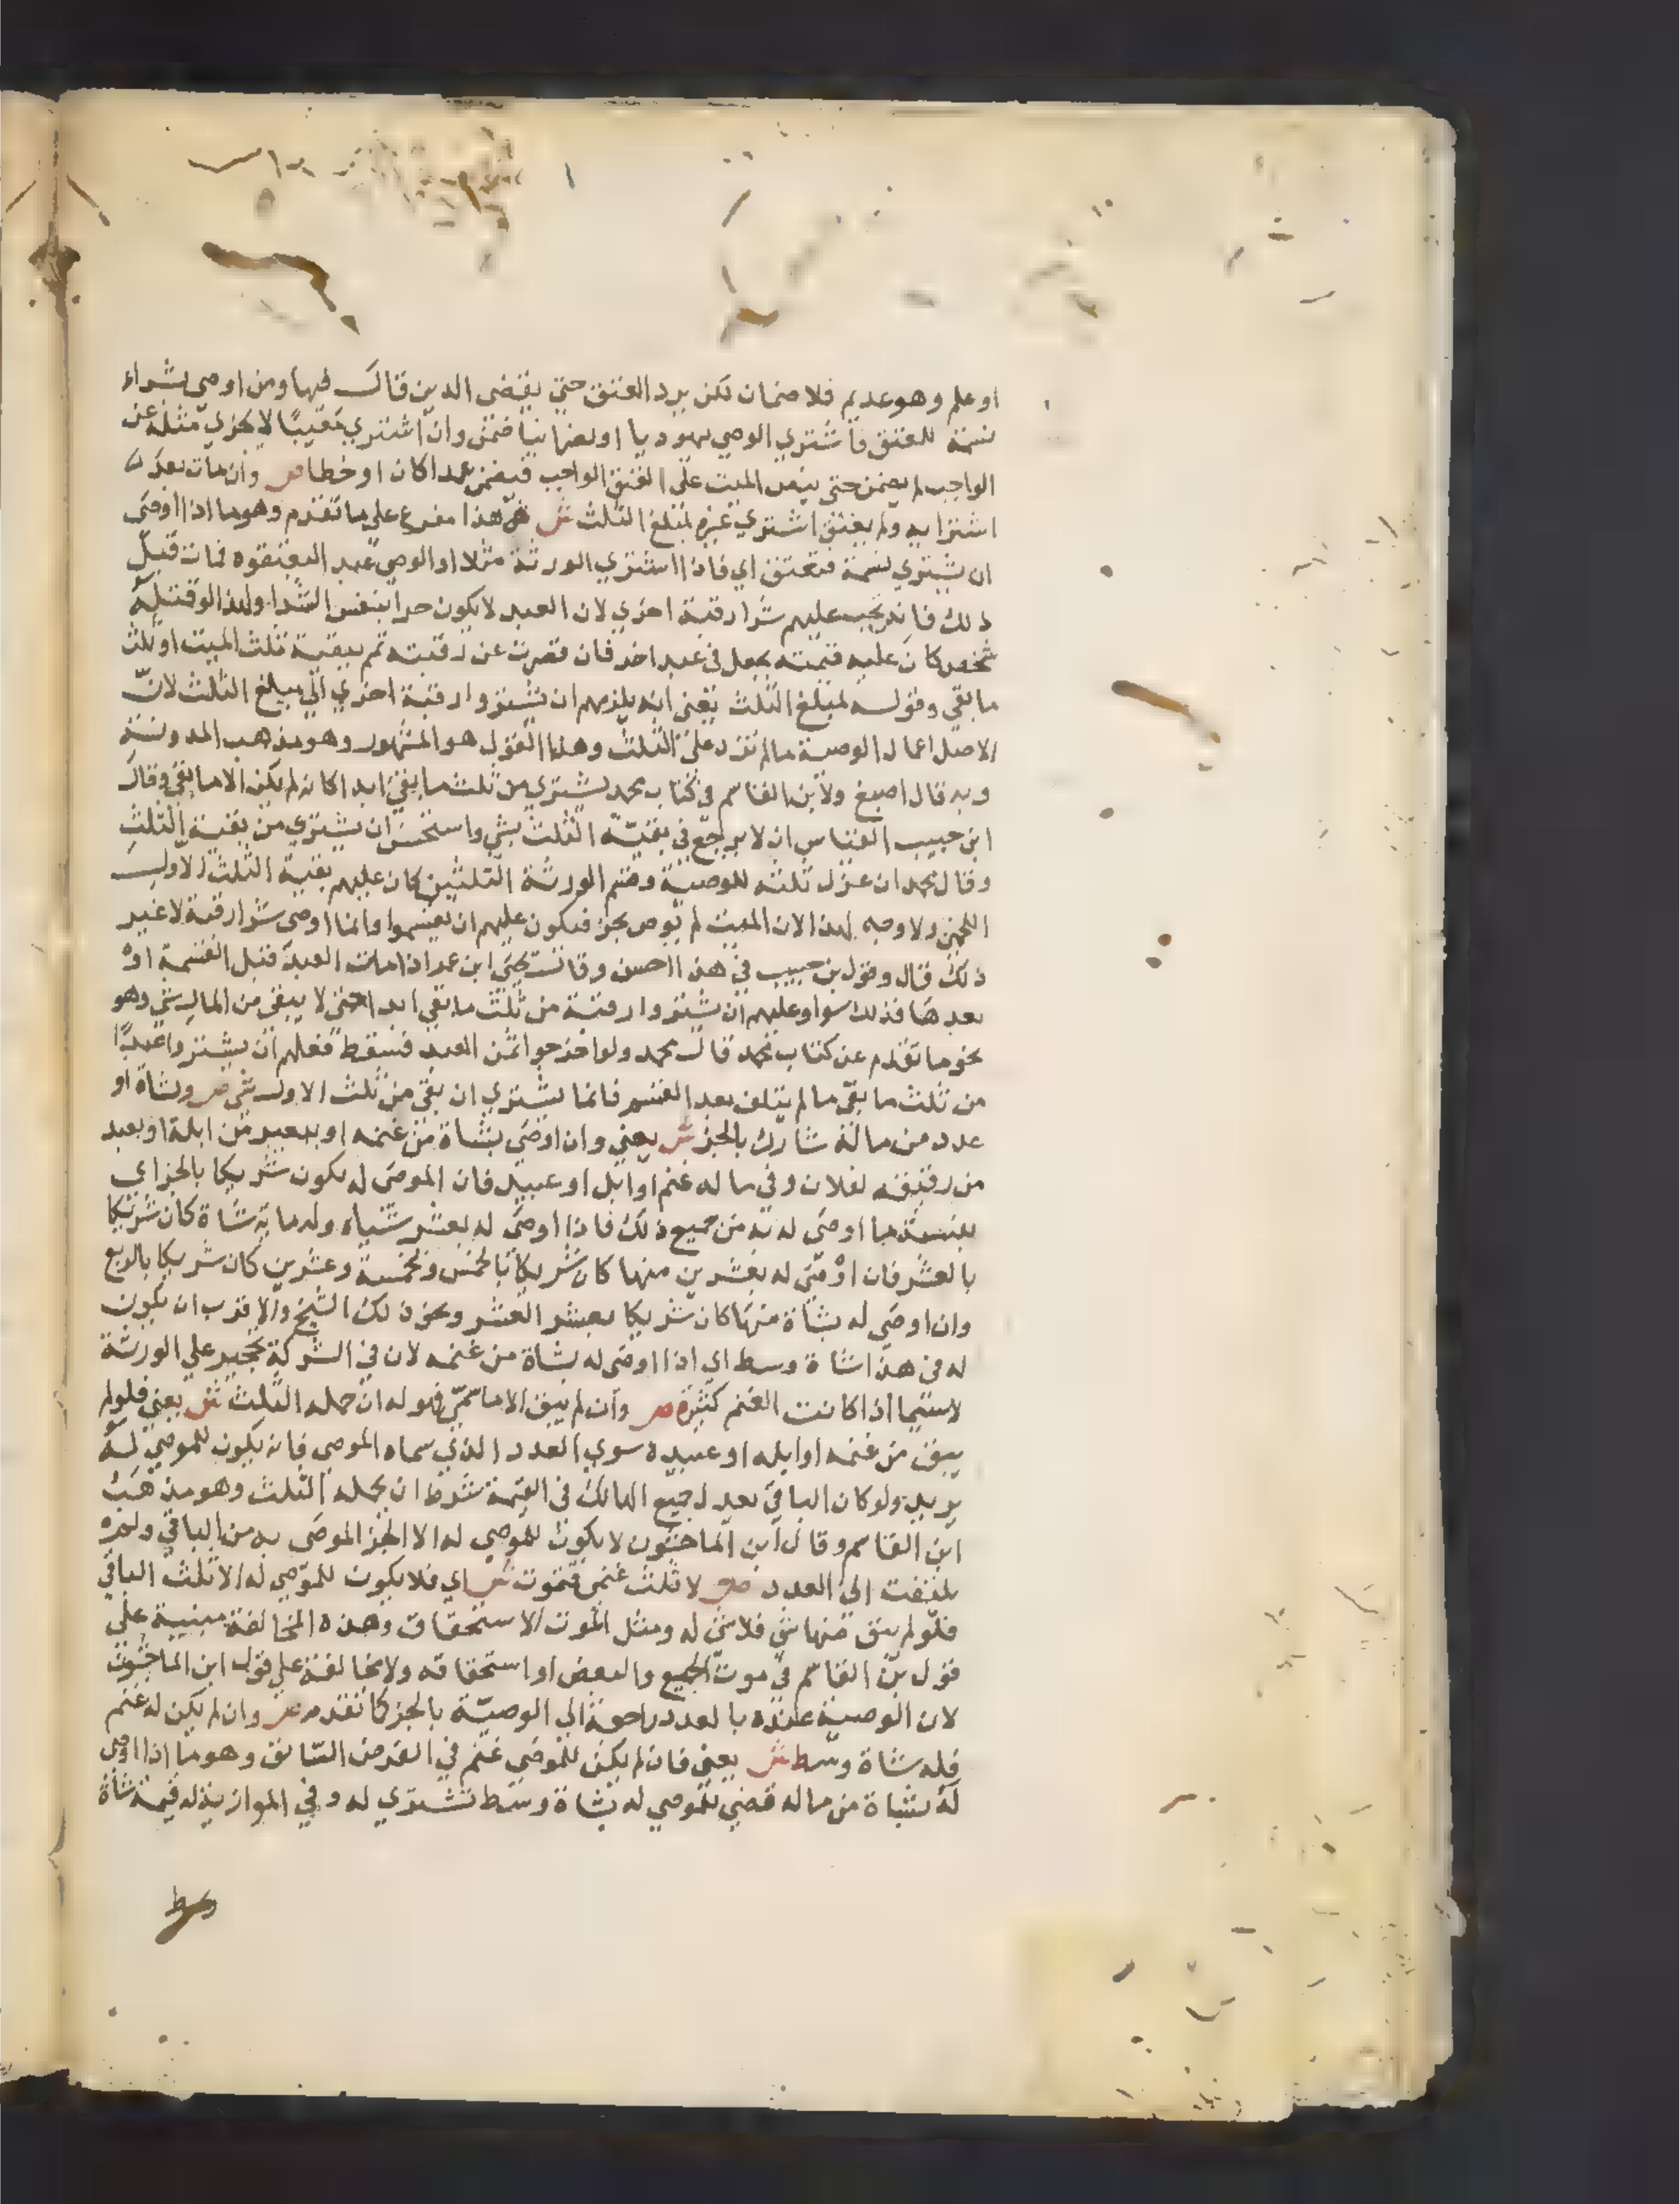 او علم وهو عديم فلا ضمان لكن يرد العتق حتي يقضي الدين قال فيها ومن اوصي بشراء
نسمة للعتق فاشتري الوصي يهوديا او نصرانيا ضمن وان اشتري معيبا لا يجزي مثله عن
الواجب لم يضمن حتي ينص الميت علي العتق الواجب فيضمن عمدا كان او خطا ص وان مات بعد
اشترايه ولم يعتق اشتري غيره لمبلغ الثلث ش هذا مفرع علي ما تقدم وهو ما اذا اوصي
ان يشتري نسمة فتعتق اي فاذا اشتري الورثة مثلا او الوصي عبد اليعتقوه فمات قبل
ذلك فانه يجب عليهم شرا رقبة اخري لان العبد لا يكون حرا بنفس الشرا ولهذا لو قتله
شخص كان عليه قيمته يجعل في عبد اخر فان قصرت عن رقبته تمم ببقية ثلث الميت او ثلث
ما بقي وقوله لمبلغ الثلث يعني انه يلزمهم ان يشتروا رقبة اخري الي مبلغ الثلث لان
الاصل اعمال الوصية ما لم تزد علي الثلث وهذا القول هو المشهور وهو مذهب المدونة
وبه قال اصبغ ولابن القاسم في كتاب محمد يشتري من ثلث ما بقي ابدا كانه لم يكن الا ما بقي وقال
ابن حبيب القياس ان لا يرجع في بقية الثلث بشي واستحسن ان يشتري من بقية الثلث
وقال محمد ان عزل ثلثه للوصية وقسم الورثة الثلثين كان عليهم بقية الثلث الاول
اللخمي ولا وجه لهذا لان الميت لم يوص بجز فيكون عليهم ان يقسموا وانما اوصي بشرا رقبة لا غير
ذلك قال وقول بن حبيب في هذا احسن وقال يحيي ابن عمر اذا مات العبد قبل القسمة او
بعدها فذلك سوا وعليهم ان يشتروا رقبة من ثلث ما بقي ابدا حتي لا يبقي من المال شي وهو
نحو ما تقدم عن كتاب محمد قال محمد ولو اخرجوا ثمن العبد فسقط فعليهم ان يشتروا عبدا
من ثلث ما بقي ما لم يتلف بعد القسم فانما يشتري ان بقي من ثلث الاول شي ص وبشاة او
عدد من ماله شارك بالجز ش يعني وان اوصي بشاة من غنمه او ببعير من ابله او بعبد
من رقيقه لفلان وفي ماله غنم او ابل او عبيد فان الموصي له يكون شريكا بالجز اي
بنسبة ما اوصي له به من جميع ذلك فاذا اوصي له بعشر شياه وله ماية شاة كان شريكا
بالعشر فان اوصي له بعشرين منها كان شريكا بالخمس وبخمسة وعشرين كان شريكا بالربع
وان اوصي له بشاة منها كان شريكا بعشر العشر ونحو ذلك الشيخ والاقرب ان يكون
له في هذا شاة وسط اي اذا اوصي له بشاة من غنمه لان في الشركة تحجير علي الورثة
لاسيما اذا كانت الغنم كثيرة ص وان لم يبق الا ما سمي فهو له ان حمله الثلث ش يعني فلو لم
يبق من غنمه او ابله او عبيده سوي العدد الذي سماه الموصي فانه يكون للموصي له
يريد ولو كان الباقي يعدل جميع المالك في القيمة بشرط ان يحمله الثلث وهو مذهب
ابن القاسم وقال ابن الماجشون لا يكون للموصي له الا الجز الموصي به من الباقي ولم
يلتفت الي العدد ص لا ثلث غنمي فتموت ش اي فلا يكون للموصي له الا ثلث الباقي
فلو لم يبق منها شي فلا شي له ومثل الموت الاستحقاق وهذه المخالفة مبنية علي
قول بن القاسم في موت الجميع والبعض او استحقاقه ولا مخالفة علي قول ابن الماجشون
لان الوصية عنده بالعدد راجعة الي الوصية بالجز كما تقدم ص وان لم يكن له غنم
فله شاة وسط ش يعني فان لم يكن للموصي غنم في الفرض السابق وهو ما اذا اوصي
له بشاة من ماله قضي للموصي له بشاة وسط تشتري له وفي الموازية له قيمة شاة
وسط